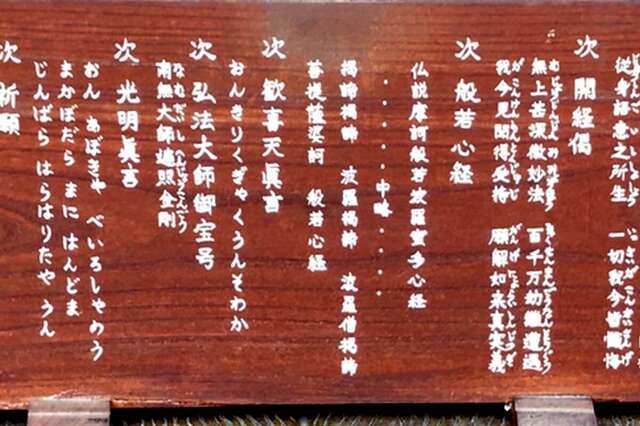 従身語意之所生　一切我今皆懺悔
次　開経偈
無上甚深微妙法　百千万劫難遭遇
我今見聞得受持　願解如来真実義
次　般若心経
仏説摩訶般若波羅蜜多心経
・・・・・・中略・・・・・・
羯諦羯諦　波羅羯諦　波羅僧羯諦
菩提薩婆訶　般若心経
次　歓喜天眞言
おんきりくぎゃくうんそわか
次　弘法大師御宝号
南無大師遍照金剛
なむだいしへんじょうこんごう
次　光明眞言
おん　あぼきゃ　べいろしゃのう
まかぼだら　まに　はんどま
じんばら　はらはりたや　うん
次　祈願